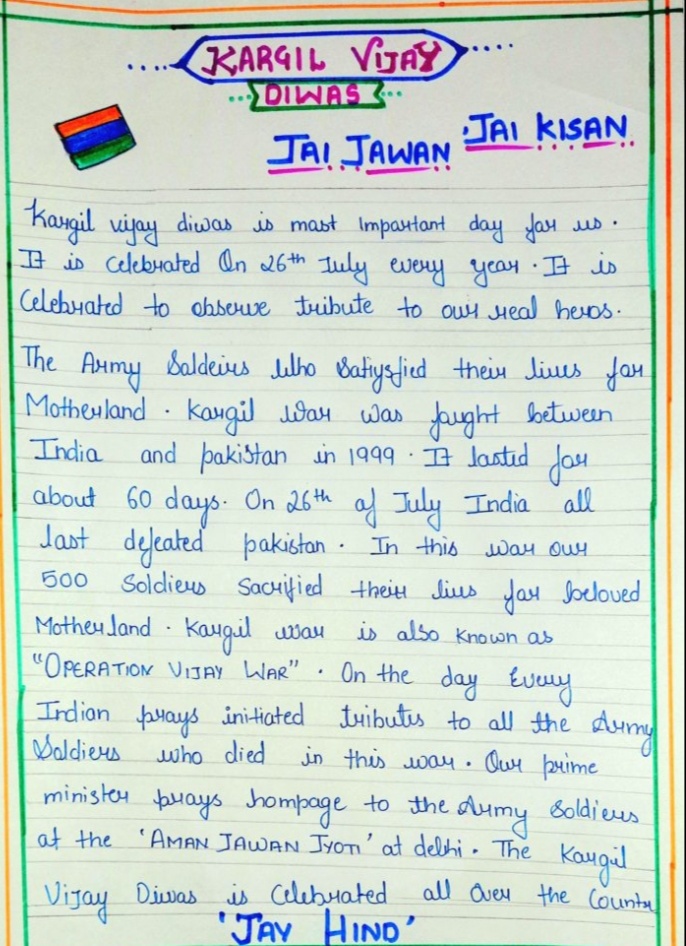 KARGIL VIJAY
DIWAS
JAI JAWAN JAI KISAN
Kargil vijay diwas is mast Impartant day far us.
It is celebrated On 26th July every year. It is
Celebrated to observe tribute to our real heros.
The Army Saldeirs Who Satiysfied their lives far
Motherland. Kargil War was faught between
India and pakistan in 1999. It lasted far
about 60 days. On 26th of July India all
last defeated pakistan. In this war our
500 Soldiers Sacrified their lius far beloved
Motherland. Kargil war is also known as
"OPERATION VIJAY WAR". On the day Every
Indian prays initiated tributes to all the Army
Soldiers who died in this war. Our prime
minister prays hompage to the Army Soldiers
at the 'AMAN JAWAN JYOTI' at delhi. The Kargil
Vijay Diwas is Celebrated all Over the Countr
'JAY HIND'